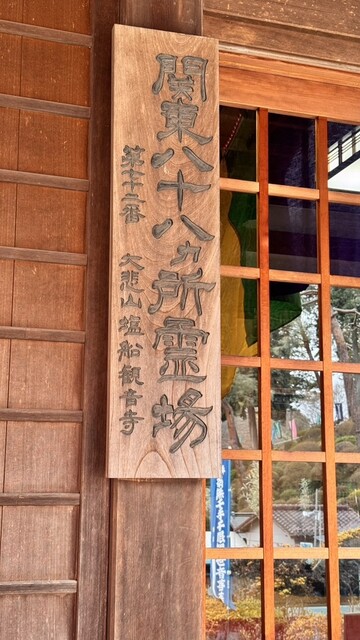 関東八十八ヵ所霊場
第七十二番 大悲山塩船観音寺